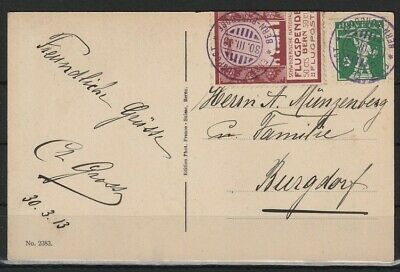 Freundliche Grüsse
Ch. Gross
30.3.13
No. 2383.
Edition Phot. Franco-Suisse, Berne.
SCHWEIZERISCHE NATIONALE
FLUGSPENDE
BERN
FLUGPOST
30.III.13
HELVETIA
5
Herrn A. Münzenberg
u Familie
Burgdorf